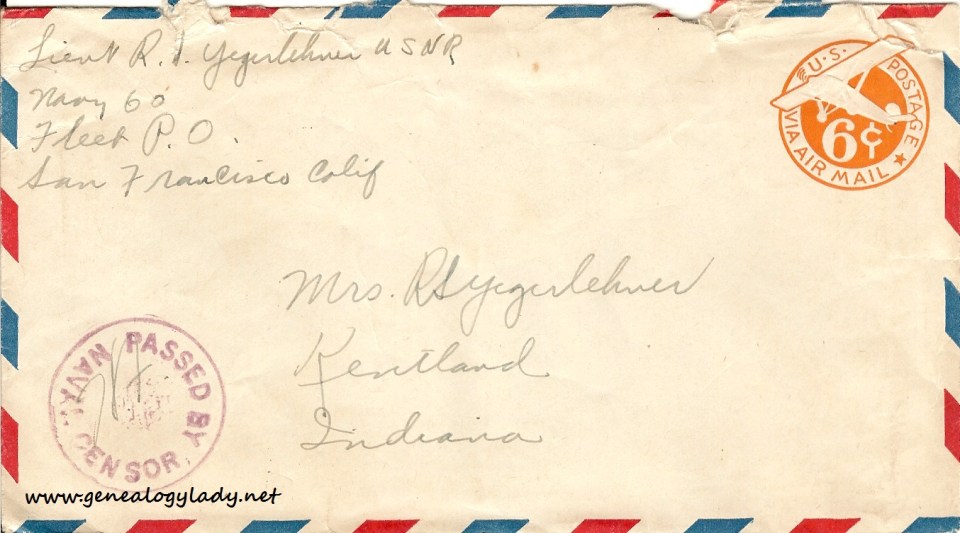 Lieut R. S. Yegerlehner USNR
Navy 60
Fleet P.O.
San Francisco Calif
U.S. POSTAGE
6¢
VIA AIR MAIL
Mrs. RS Yegerlehner
Kentland
Indiana
PASSED BY
NAVAL CENSOR
www.genealogylady.net